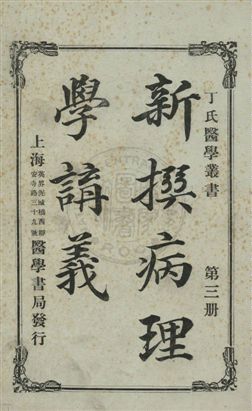 丁氏醫學叢書 第三册
新撰病理
學講義
上海英界泥城橋西堍安寺路三十九號醫學書局發行